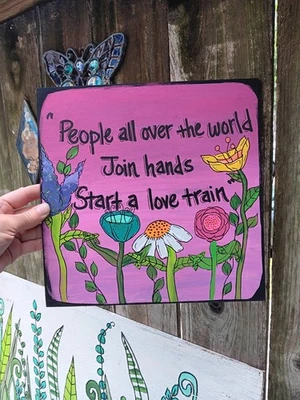 "People all over the world
Join hands
Start a love train"